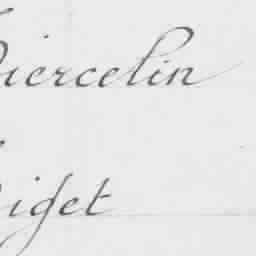 iercelin
iget